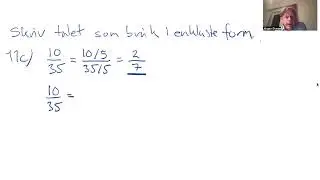 Skriv talet som bråk i enklaste form.
11c) 10/35 = 10/5 / 35/5 = 2/7
10/35 =